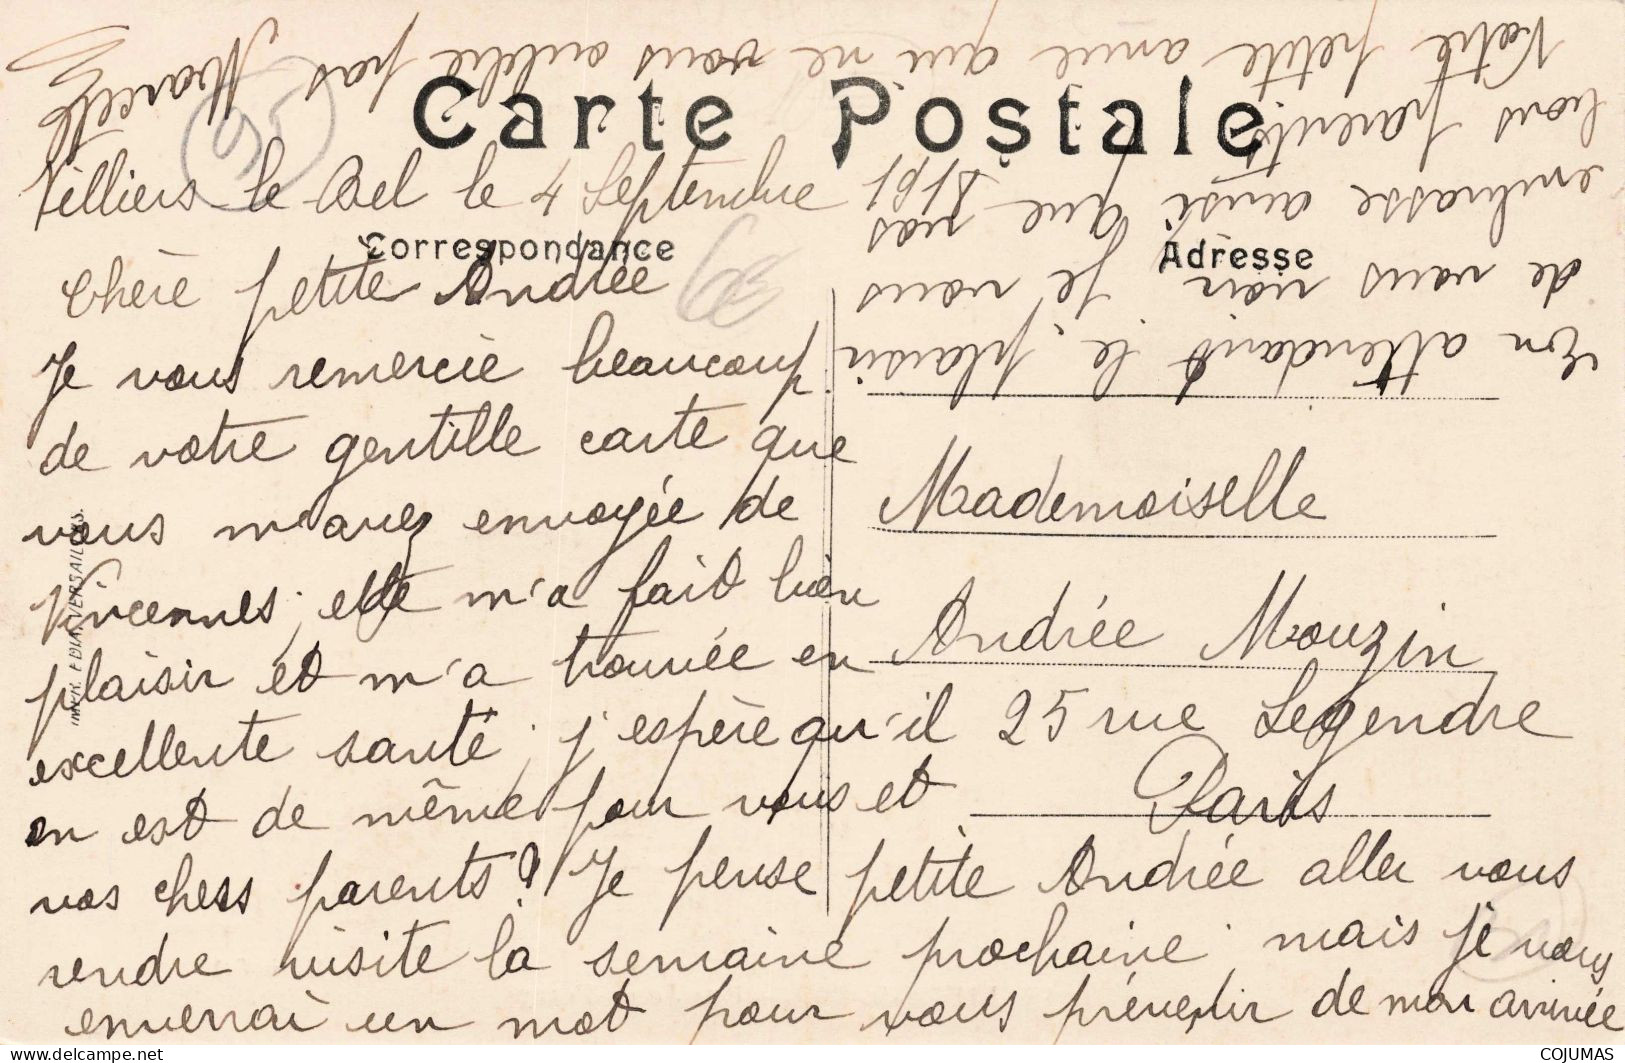 Carte Postale
Correspondance
Adresse
Villiers le Bel le 4 Septembre 1918
Chère petite Andrée
Je vous remercie beaucoup
de votre gentille carte que
vous m'avez envoyée de
Vincennes; elle m'a fait bien
plaisir et m'a trouvée en
excellente santé; j'espère qu'il
en est de même pour vous et
vos chers parents? Je pense petite Andrée aller vous
rendre visite la semaine prochaine; mais je vous
enverrai un mot pour vous prévenir de mon arrivée
En attendant le plaisir
de vous voir, je vous
embrasse ainsi que vos
bons parents
Votre petite amie qui ne vous oublie pas Marcelle
Mademoiselle
Andrée Mouzin
25 rue Legendre
Paris
IMPR. EDIA, VERSAILLES.
delcampe.net
COJUMAS